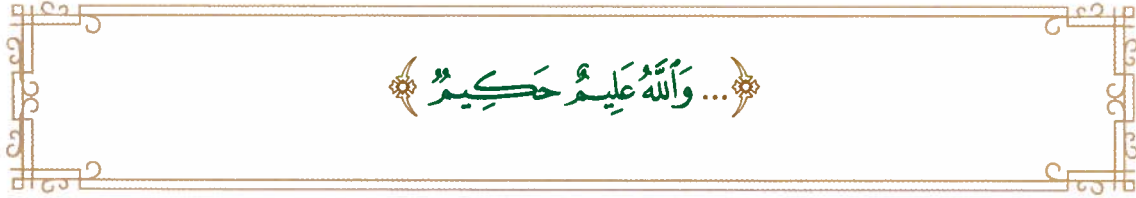 ﴿... وَٱللَّهُ عَلِيمٌ حَكِيمٌ﴾